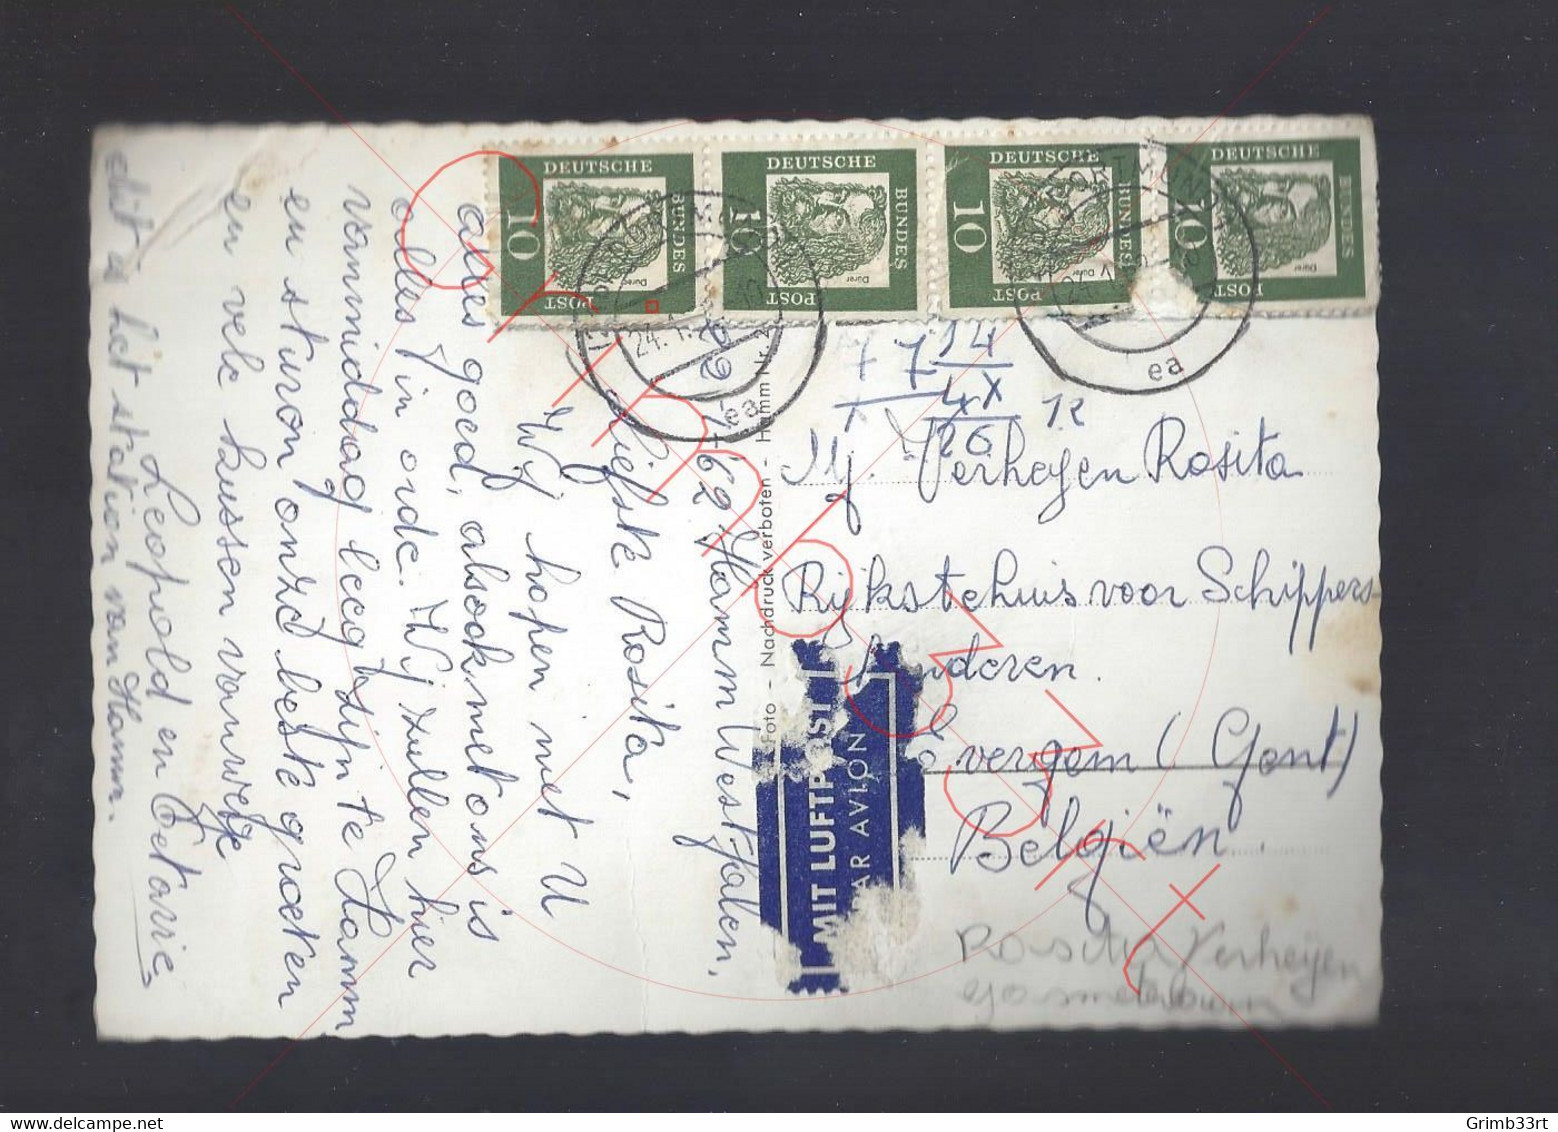 DEUTSCHE BUNDESPOST
10
Dürer
DEUTSCHE BUNDESPOST
10
Dürer
DEUTSCHE BUNDESPOST
10
Dürer
DEUTSCHE BUNDESPOST
10
Dürer
DORTMUND
24.1.
ea
24.1.
ea
'62 Hamm Westfalen,
Liefste Rosita,
Wij hopen met U
alles goed, alsook met ons is
alles in orde. Wij zullen hier
vanmiddag leeg zijn te Hamm
en sturen onze beste groeten
en vele kussen vanwege
Leopold en Octavie
dit is het station van Hamm.
Foto - Nachdruck verboten - Hamm Nr. 2
7 7 14
4 X
26
12
Mj. Verheyen Rosita
Rijkstehuis voor Schippers-
kinderen.
Evergem (Gent)
Belgiën.
MIT LUFTPOST
PAR AVION
Rosita Verheijen
Grimb33rt
delcampe.net
Grimb33rt